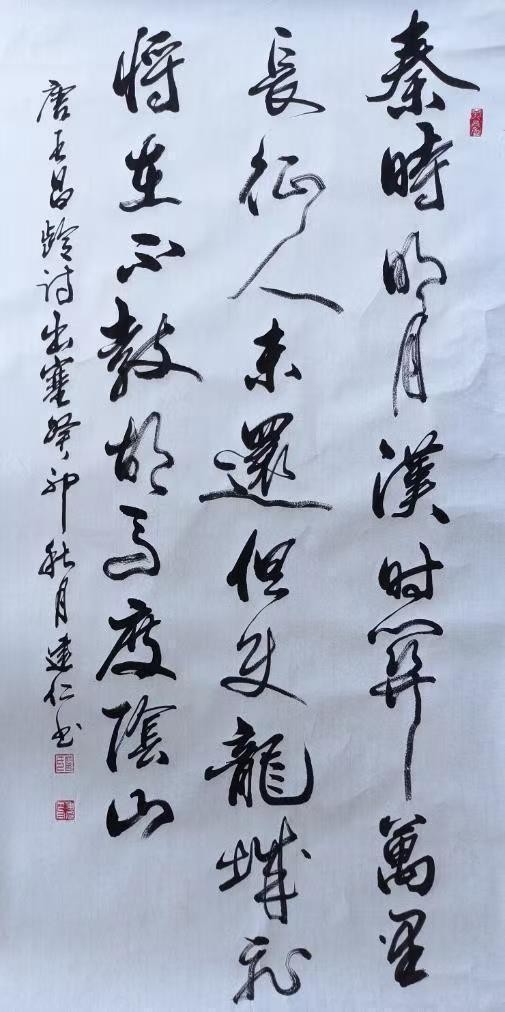 秦時明月漢时關萬里
長征人未還但使龍城飛
将在不教胡马度陰山
唐王昌龄诗出塞癸卯秋月建仁书